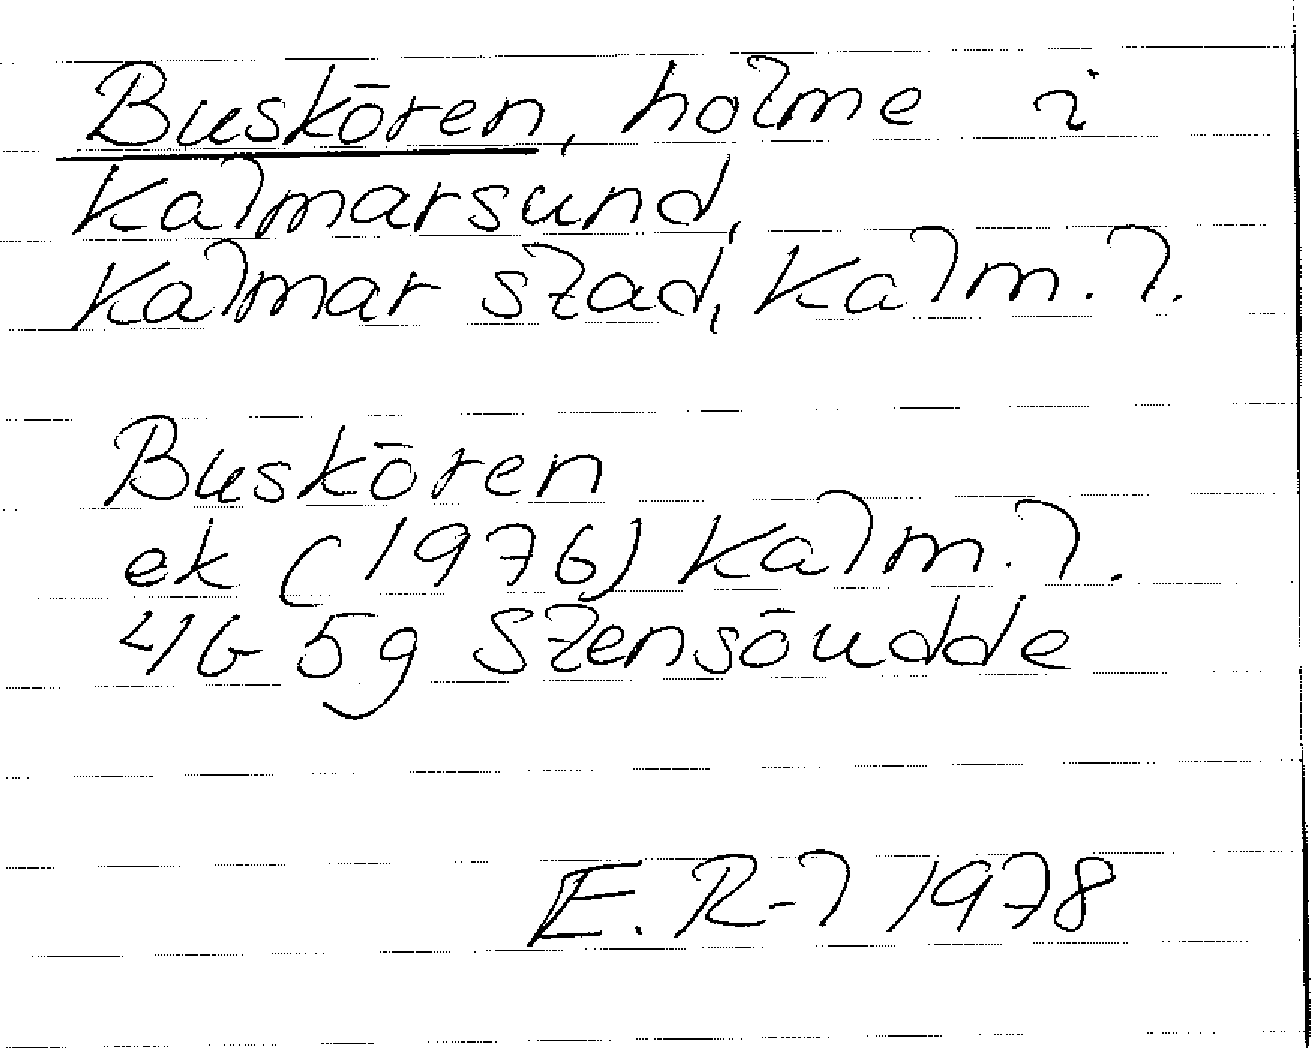 Buskören, holme i
Kalmarsund,
Kalmar stad, Kalm. l.
Buskören
ek (1976) Kalm. l.
4G 5g Stensöudde
E. R-l 1978